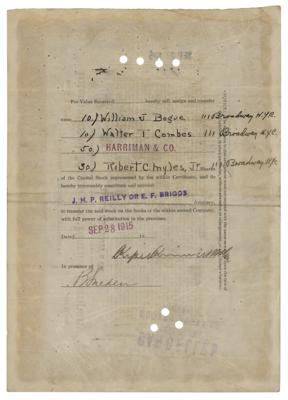 For Value Received hereby sell, assign and transfer
unto 10/ William J Bogue 111 Broadway N.Y.C.
10/ Walter T Combes 111 Broadway N.Y.C.
50/ HARRIMAN & CO.
30/ Robert C. Myles, Jr 111 Broadway N.Y.C.
of the Capital Stock represented by the within Certificate, and do
hereby irrevocably constitute and appoint
J. H. P. REILLY OR E. F. BRIGGS
Attorney,
to transfer the said stock on the books of the within named Company,
with full power of substitution in the premises.
Dated
SEP 28 1915
In presence of